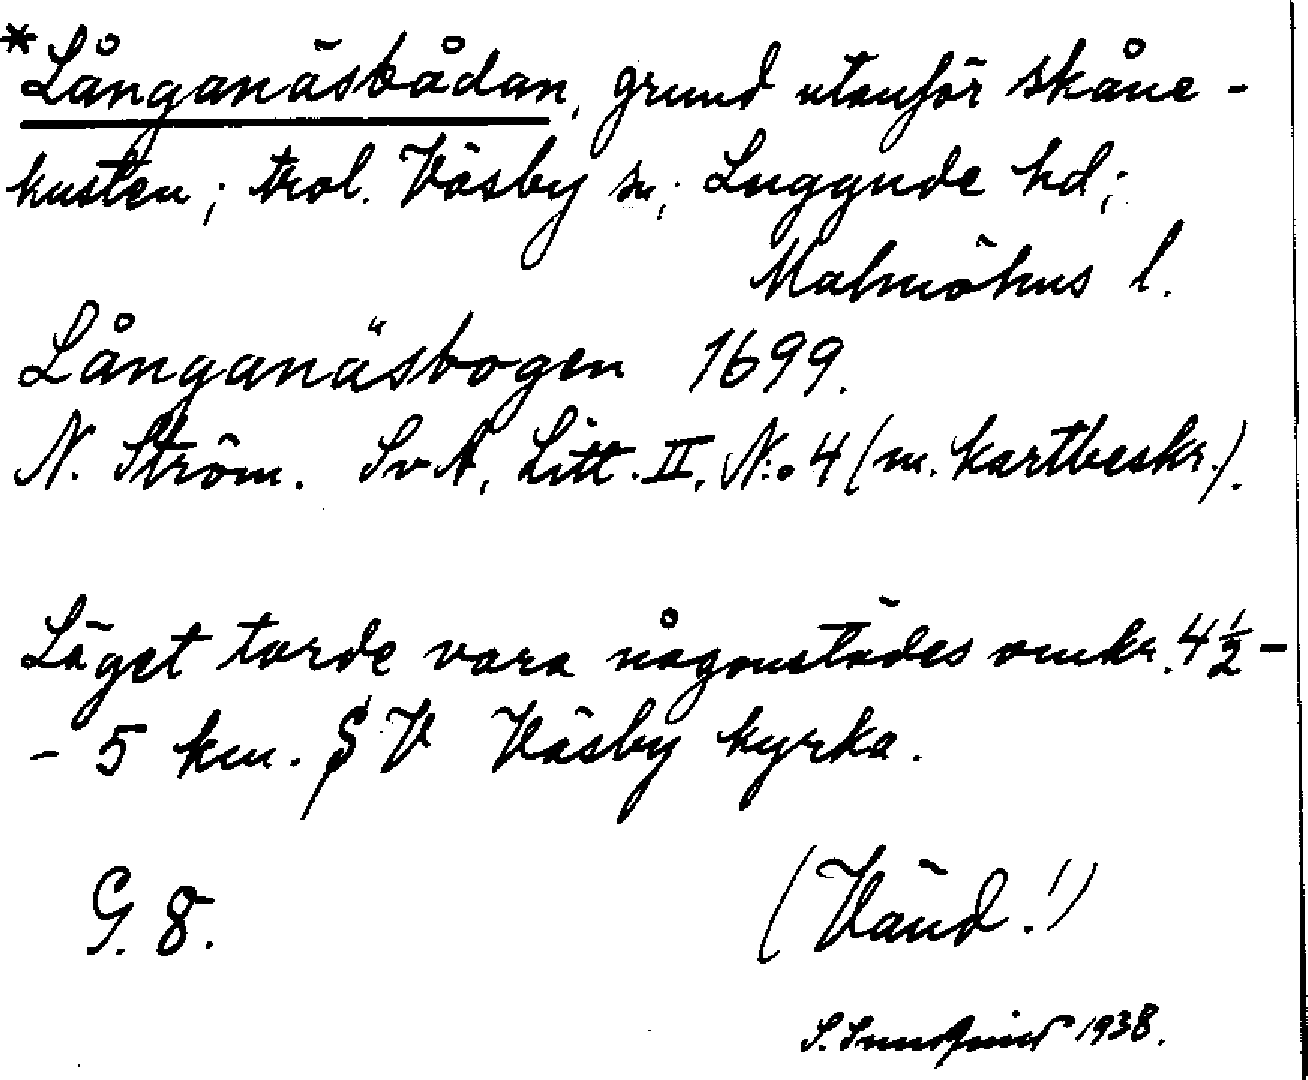 *Långanäsbådan, grund utanför skåne-
kusten; trol. Väsby sn; Luggude hd;
Malmöhus l.
Långanäsbogen 1699.
N. Ström. SvA, Litt. II, N:o 4 (m. kartbeskr.).
Läget torde vara någonstädes omkr. 4½-
- 5 km. V Väsby kyrka.
G. 8.
(Vänd!)
S. Sundquist 1938.